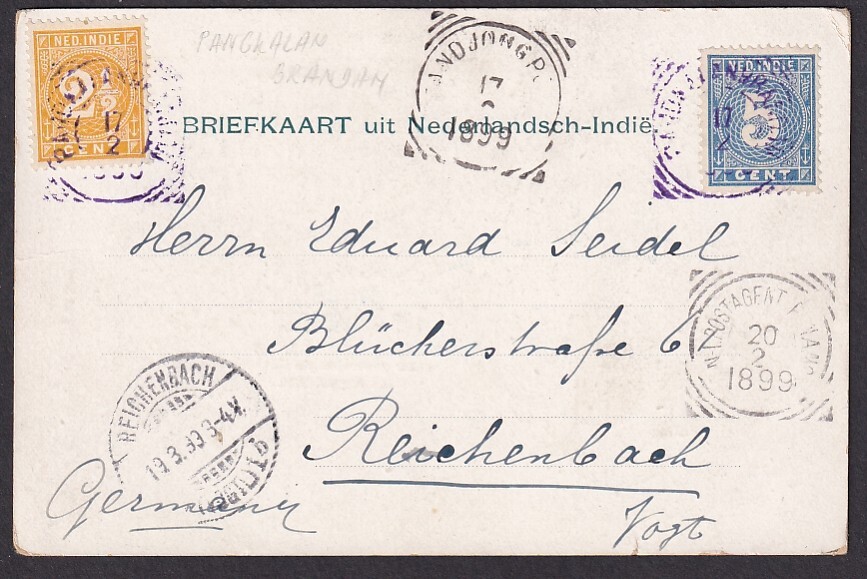 NED. INDIE
2½
CENT
PANGKALAN
BRANDAN
ANDJONGP
17
2
1899
NED. INDIE
5
CENT
17
2
17
2
BRIEFKAART uit Nederlandsch-Indië.
Herrn Eduard Seidel
Blücherstraße 6
N-I. POSTAGENT
20
2
1899
REICHENBACH
19.3.99 3-4N.
(VOGTLD)
Reichenbach
Germany
Vogt